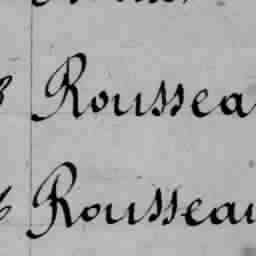 8 Roussea
6 Rousseau